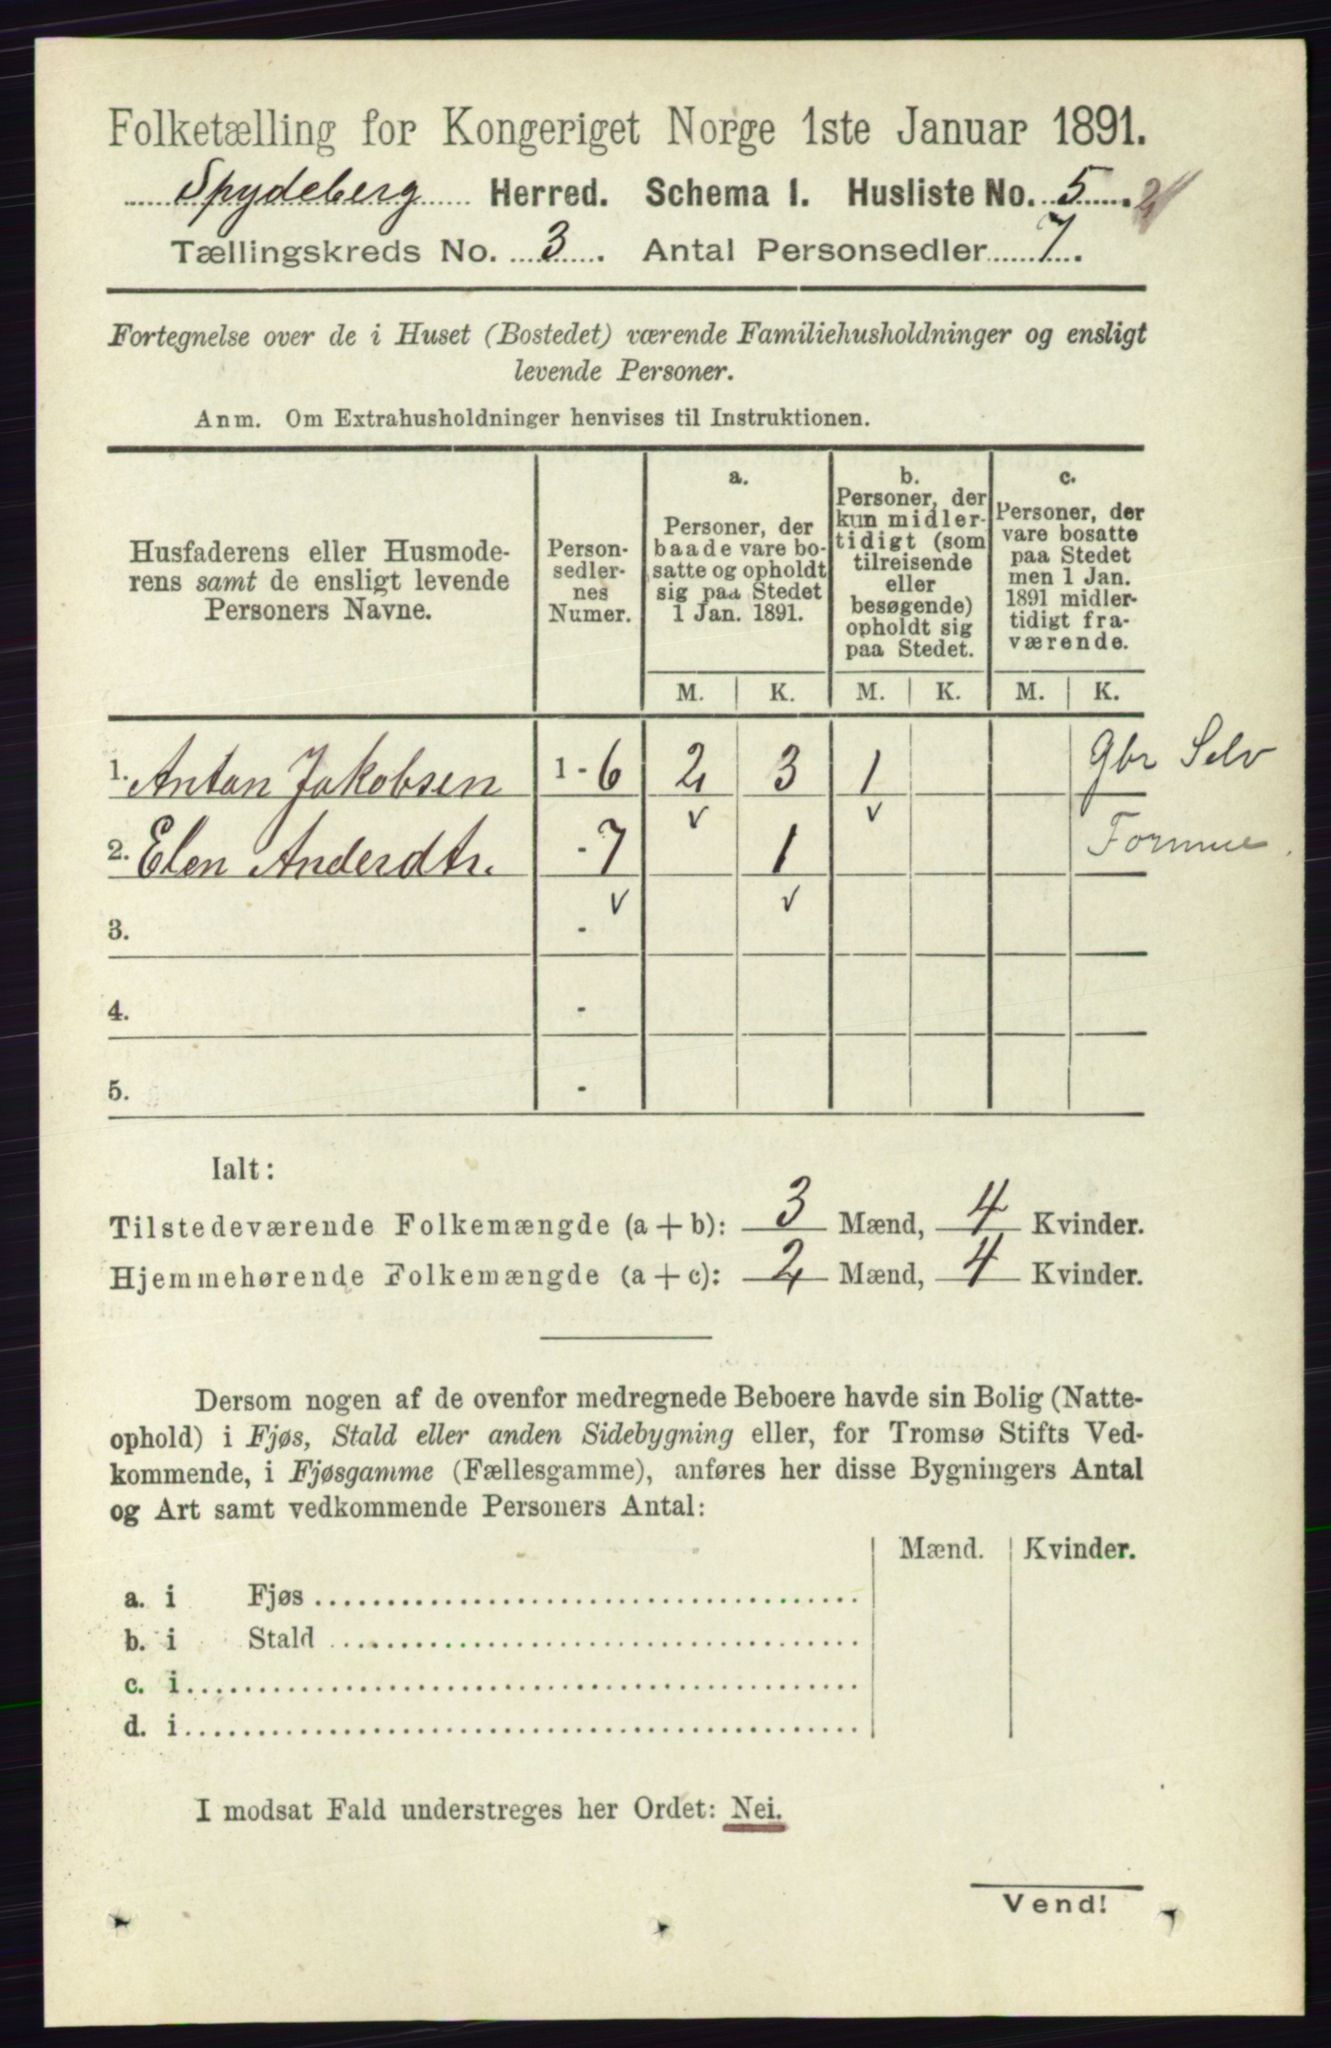 Folketælling for Kongeriget Norge 1ste Januar 1891.
Spydeberg Herred. Schema I. Husliste No. 5 2
Tællingskreds No. 3. Antal Personsedler 7.
Fortegnelse over de i Huset (Bostedet) værende Familiehusholdninger og ensligt
levende Personer.
Anm. Om Extrahusholdninger henvises til Instruktionen.
Husfaderens eller Husmode-
rens samt de ensligt levende
Personers Navne.
Person-
sedler-
nes
Numer.
a.
Personer, der
baade vare bo-
satte og opholdt
sig paa Stedet
1 Jan. 1891.
b.
Personer, der
kun midler-
tidigt (som
tilreisende
eller
besøgende)
opholdt sig
paa Stedet.
c.
Personer, der
vare bosatte
paa Stedet
men 1 Jan.
1891 midler-
tidigt fra-
værende.
M. K. M. K. M. K.
1. Anton Jakobsen 1 - 6 2 3 1 Gbr Selv
v v
2. Elen Anderdtr. - 7 1 Formue
v v
3. -
4. -
5. -
Ialt:
Tilstedeværende Folkemængde (a + b): 3 Mænd, 4 Kvinder.
Hjemmehørende Folkemængde (a + c): 2 Mænd, 4 Kvinder.
Dersom nogen af de ovenfor medregnede Beboere havde sin Bolig (Natte-
ophold) i Fjøs, Stald eller anden Sidebygning eller, for Tromsø Stifts Ved-
kommende, i Fjøsgamme (Fællesgamme), anføres her disse Bygningers Antal
og Art samt vedkommende Personers Antal:
Mænd. Kvinder.
a. i Fjøs
b. i Stald
c. i
d. i
I modsat Fald understreges her Ordet: Nei.
Vend!